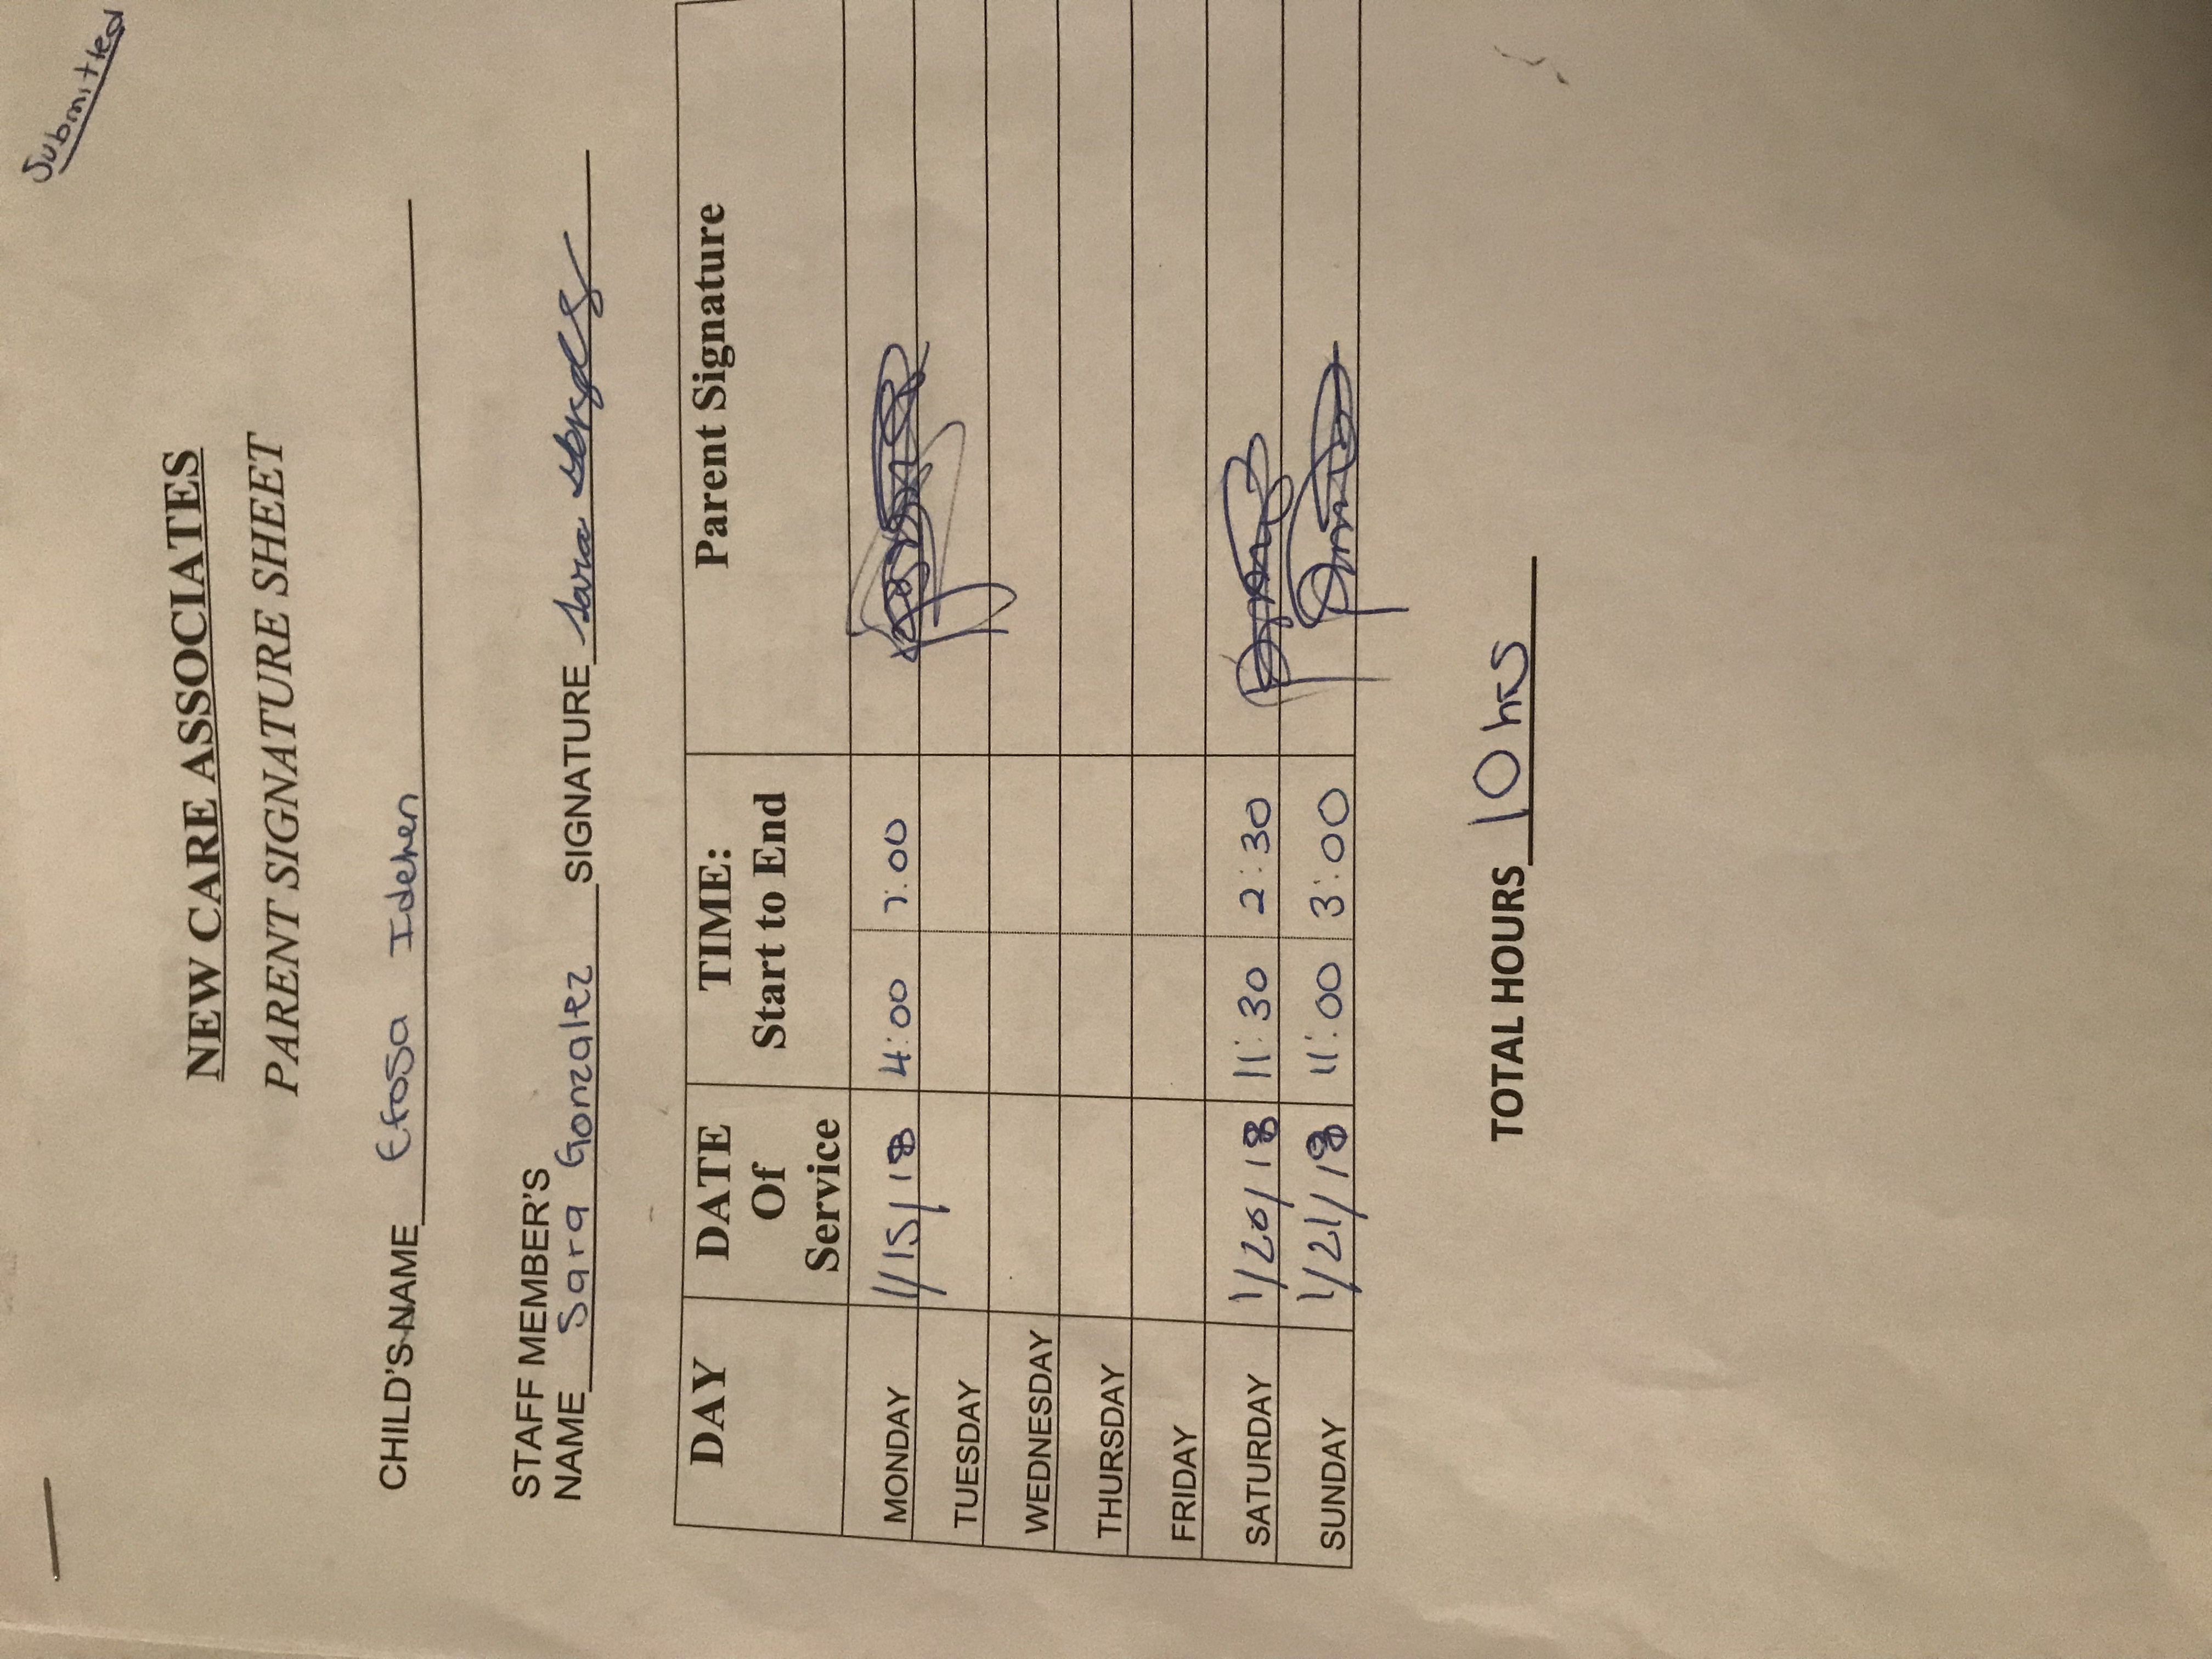 Submitted
NEW CARE ASSOCIATES
PARENT SIGNATURE SHEET
CHILD'S NAME Efosa Idehen
STAFF MEMBER'S
NAME Sara Gonzalez SIGNATURE Sara
DAY DATE Of Service TIME: Start to End Parent Signature
MONDAY 1/15/18 4:00 7:00
TUESDAY
WEDNESDAY
THURSDAY
FRIDAY
SATURDAY 1/20/18 11:30 2:30
SUNDAY 1/21/18 11:00 3:00
TOTAL HOURS 10 hrs